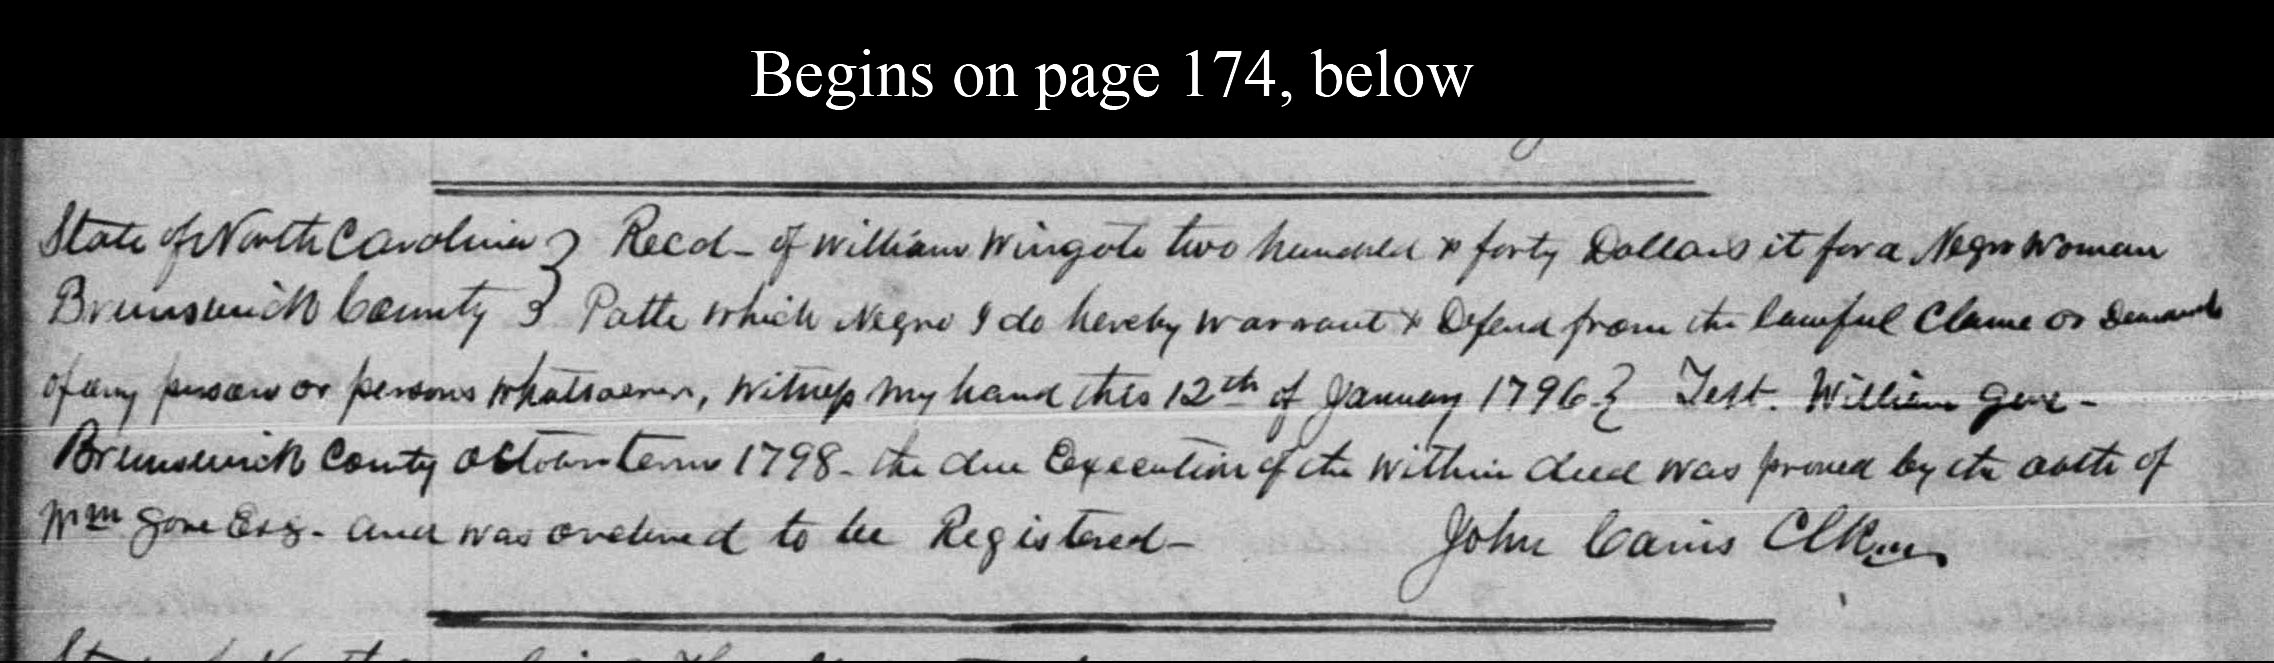 Begins on page 174, below
State of North Carolina } Recd - of William Wingate two hundred & forty Dollars it for a Negro Woman
Brunswick County } Patte which Negro I do hereby warrant & Defend from the lawful Clame or Demands
of any person or persons whatsoever, Witness my hand this 12th of January 1796 } Test. William Gore -
Brunswick County October term 1798 - the due Execution of the within deed was proved by the oath of
Wm Gore Esq - and was ordered to be Registered - John Cains Clk